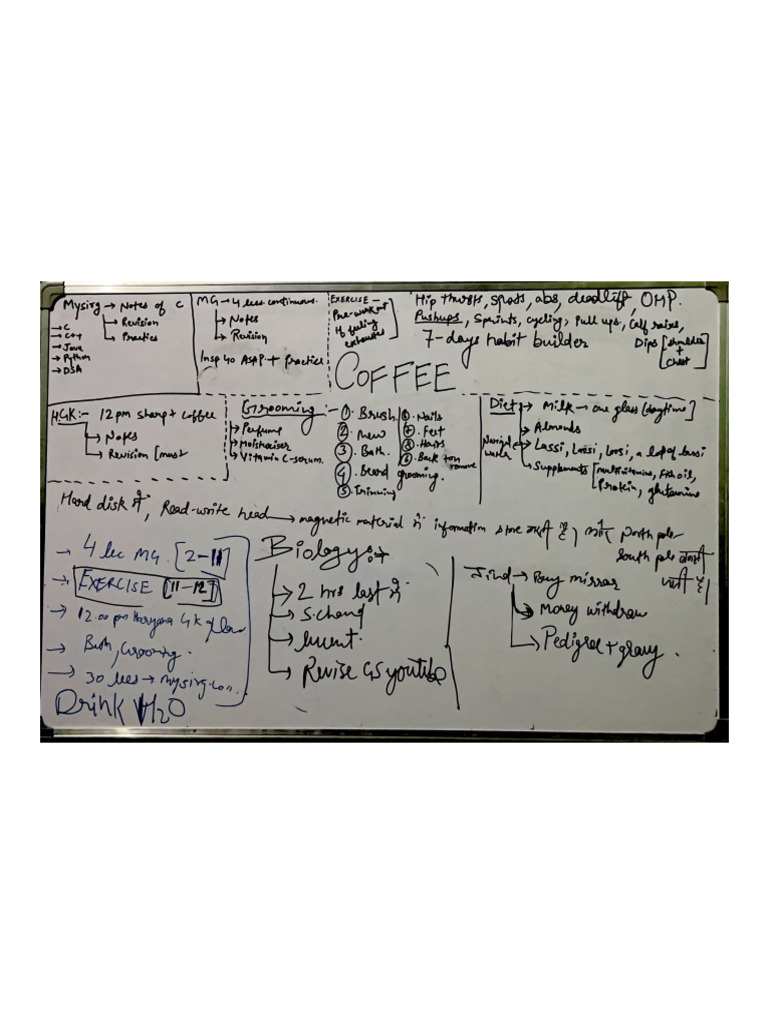 Mysirg → Notes of C
→ Revision
→ Practice
→ C
→ C++
→ Java
→ Python
→ DSA
MG → 4 lecs continuous.
→ Notes
→ Revision
Insp 40 ASAP + Practice
EXERCISE -
Pre-workout
if feeling
exhausted
Hip thursts, squats, abs, deadlift, OHP.
Pushups, Sprints, cycling, Pull ups, Calf raises,
7-days habit builder
Dips [shoulder
+
chest]
COFFEE
H.GK:- 12 pm sharp + coffee
→ Notes
→ Revision [must
Grooming:-
→ Perfume
→ Moisturiser
→ Vitamin C-serum.
① Brush
② New
③ Bath.
④ Beard grooming.
⑤ Trimming
⑥ Nails
⑦ Feet
⑧ Hairs
⑥ Back tan
remove
Diet → Milk → one glass [daytime]
→ Almonds
→ Lassi, Lassi, lassi, a lot of lassi
→ Supplements [multivitamins, Fish oil,
Protein, glutamine
water
Hard disk में, Read-write head → magnetic material में information store करता है
north pole
south pole
→ 4 lec MG. [2-11]
→ EXERCISE [11-12]
→ 12.00 pm Haryana GK
→ Bath, Grooming.
→ 30 lecs → mysirg.com..
Drink H2O
Biology:→
→ 2 hrs last में
→ S.chand
→ lucent.
→ Revise GS youtube
Jind → Buy mirror
→ Money withdraw
→ Pedigree + gravy.